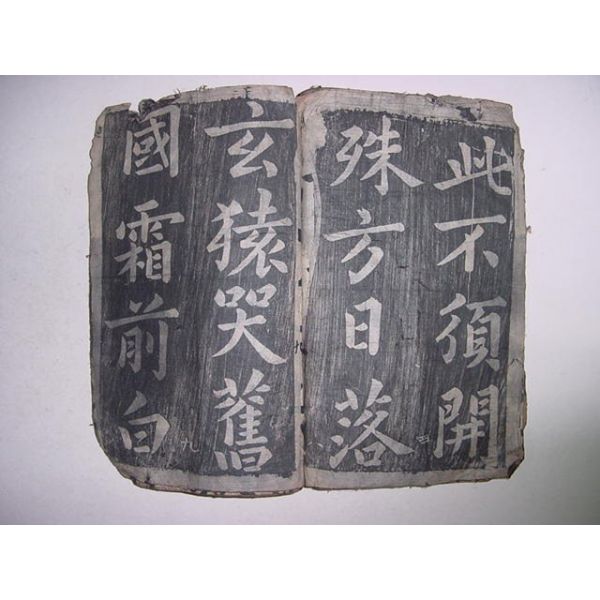 此不須開
殊方日落
玄猿哭舊
國霜前白